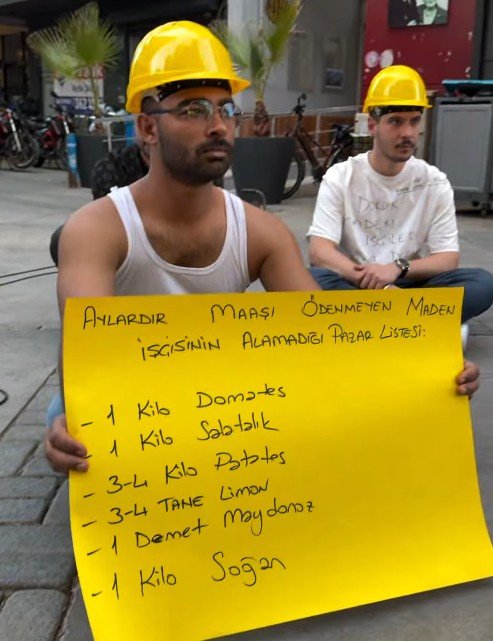 AYLARDIR MAAŞI ÖDENMEYEN MADEN
İŞÇİSİNİN ALAMADIĞI PAZAR LİSTESİ:
- 1 Kilo Domates
- 1 Kilo Salatalık
- 3-4 Kilo Patates
- 3-4 TANE Limon
- 1 Demet Maydonoz
- 1 Kilo Soğan
DORUK
MADEN
İŞÇİLERİ